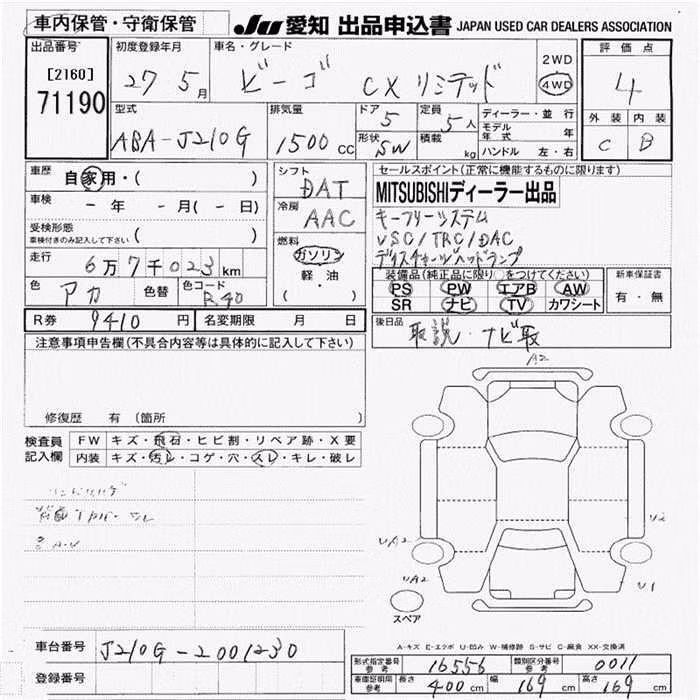 車内保管・守衛保管
JU 愛知 出品申込書 JAPAN USED CAR DEALERS ASSOCIATION
出品番号
[2160]
71190
初度登録年月
27 5月
車名・グレード
ビーゴ CX リミテッド
2WD
4WD
評価点
4
外装 内装
C B
型式
ABA-J210G
排気量
1500 CC
ドア
5
形状
SW
定員
5人
積載
kg
ディーラー・並行
モデル年式 年
ハンドル 左・右
車歴
自家用・( )
車検
- 年 - 月(- 日)
受検形態
車検付きのみ記入して下さい ( )
走行
6万7千023km
色
アカ
色替
色コード
R40
シフト
DAT
冷房
AAC
燃料
ガソリン
軽・油
( )
セールスポイント(正常に機能するものに限ります)
MITSUBISHIディーラー出品
キーフリーシステム
VSC/TRC/DAC
ディスチャージヘッドランプ
装備品(純正品に限り○をつけてください)
PS PW エアB AW
SR ナビ TV カワシート
新車保証書
有・無
R券 9410円
名変期限 月 日
後日品
取説・ナビ取
注意事項申告欄(不具合内容等は具体的に記入して下さい)
修復歴 有 (箇所
検査員記入欄
FW キズ・飛石・ヒビ割・リペア跡・X要
内装 キズ・汚レ・コゲ・穴・スレ・キレ・破レ
A2
U2
UA2
UA2
U1
スペア
A-キズ E-エクボ U-凹み W-補修跡 S-サビ C-腐食 XX-交換済
車台番号 J210G-2001230
登録番号
形式指定番号 参考 16556
類別区分番号 参考 0011
車庫証明用 参考 長さ 400cm 幅 169cm 高さ 169cm